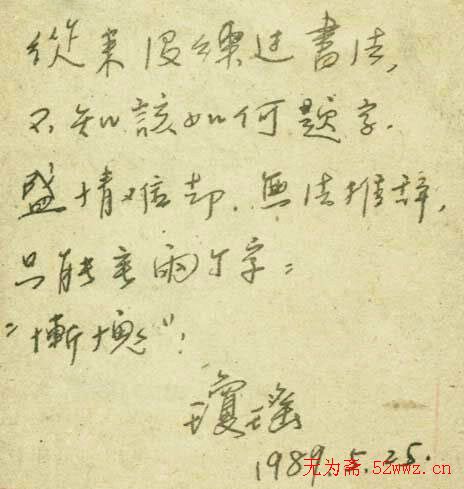 從來沒練过書法,
不知該如何題字.
盛情难却.無法推辞,
只能寫兩个字:
"慚愧".
瓊瑤
1989.5.25.
无为斋.52wwz.cn